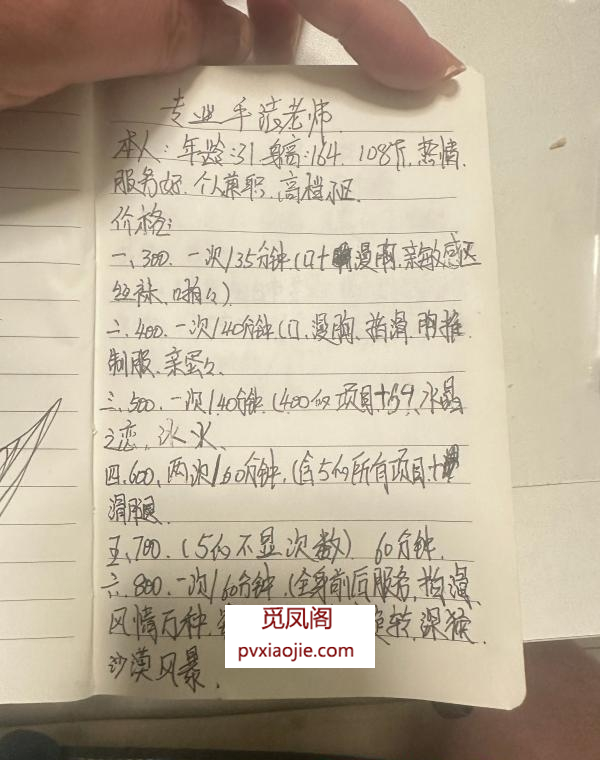 专业手法老师
本人:年龄:31 身高:164. 108斤,热情.
服务好.个人兼职、高档小区.
价格:
一、300.一次/35分钟(口+漫胸、亲敏感区
丝袜、啪々)
二、400.一次/40分钟(口、漫胸、指滑、胸推
制服、亲蛋々
三、500.一次/40分钟(400的项目+59、水晶
之恋、冰火、
四、600、两次/60分钟,(含5的所有项目+
滑腿
五、700.(5的不显次数) 60分钟.
六、800.一次/60分钟(全身前后服务,指滑
风情万种、旋转,深猴
沙漠风暴.
觅凤阁
pvxiaojie.com